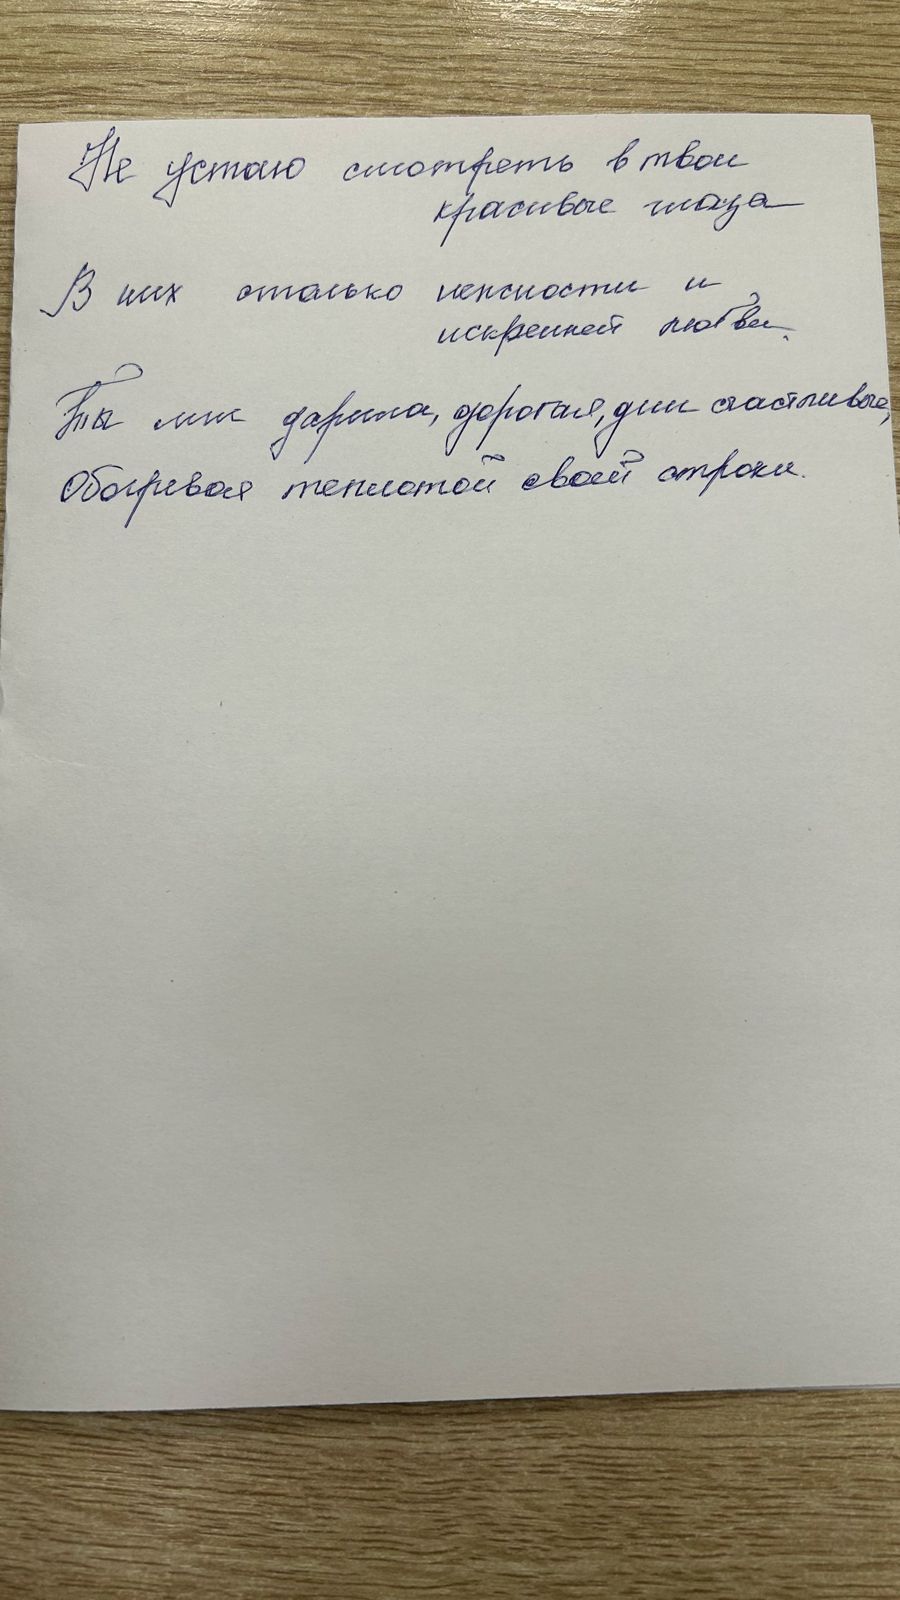 Не устаю смотреть в твои
красивые глаза
В них столько нежности и
искренней любви.
Ты мне дарила, дорогая, дни счастливые,
Обогревая теплотой своей строки.